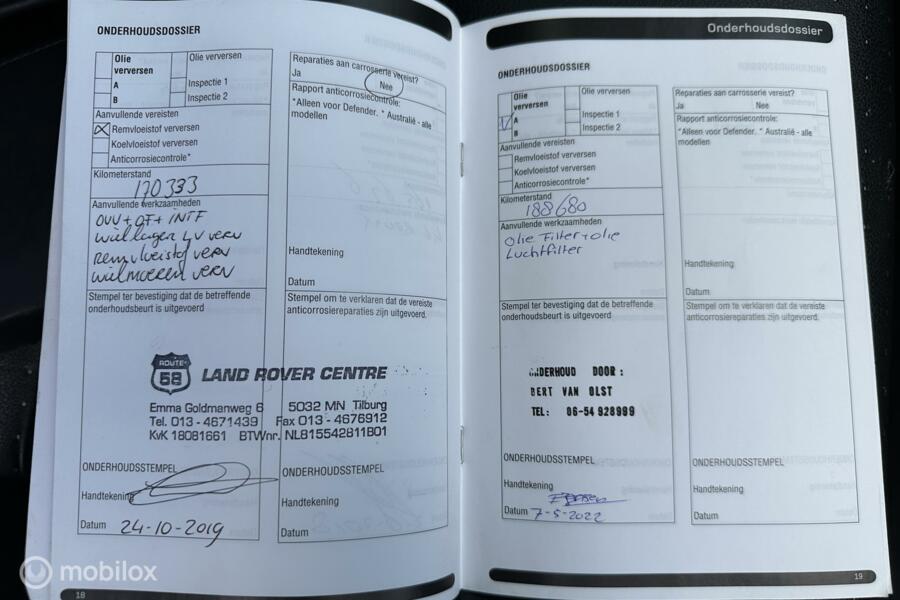 ONDERHOUDSDOSSIER
Olie verversen
A
B
Olie verversen
Inspectie 1
Inspectie 2
Aanvullende vereisten
Remvloeistof verversen
Koelvloeistof verversen
Anticorrosiecontrole*
Kilometerstand
170333
Aanvullende werkzaamheden
OVV + OF + INTF
wiellager LV verv
Remvloeistof verv
wielmoeren verv
Stempel ter bevestiging dat de betreffende
onderhoudsbeurt is uitgevoerd
Reparaties aan carrosserie vereist?
Ja Nee
Rapport anticorrosiecontrole:
*Alleen voor Defender. * Australië - alle
modellen
Handtekening
Datum
Stempel om te verklaren dat de vereiste
anticorrosiereparaties zijn uitgevoerd.
ROUTE 58 LAND ROVER CENTRE
Emma Goldmanweg 6 5032 MN Tilburg
Tel. 013 - 4671439 Fax 013 - 4676912
KvK 18081661 BTWnr. NL815542811B01
ONDERHOUDSSTEMPEL
Handtekening
Datum 24-10-2019
ONDERHOUDSSTEMPEL
Handtekening
Datum
18
Onderhoudsdossier
ONDERHOUDSDOSSIER
Olie
verversen
A
B
Olie verversen
Inspectie 1
Inspectie 2
Aanvullende vereisten
Remvloeistof verversen
Koelvloeistof verversen
Anticorrosiecontrole*
Kilometerstand
188680
Aanvullende werkzaamheden
Olie Filter + olie
Luchtfilter
Stempel ter bevestiging dat de betreffende
onderhoudsbeurt is uitgevoerd
Reparaties aan carrosserie vereist?
Ja Nee
Rapport anticorrosiecontrole:
*Alleen voor Defender. * Australië - alle
modellen
Handtekening
Datum
Stempel om te verklaren dat de vereiste
anticorrosiereparaties zijn uitgevoerd.
ONDERHOUD DOOR :
BERT VAN OLST
TEL: 06-54 928999
ONDERHOUDSSTEMPEL
Handtekening
Datum 7-5-2022
ONDERHOUDSSTEMPEL
Handtekening
Datum
19
mobilox